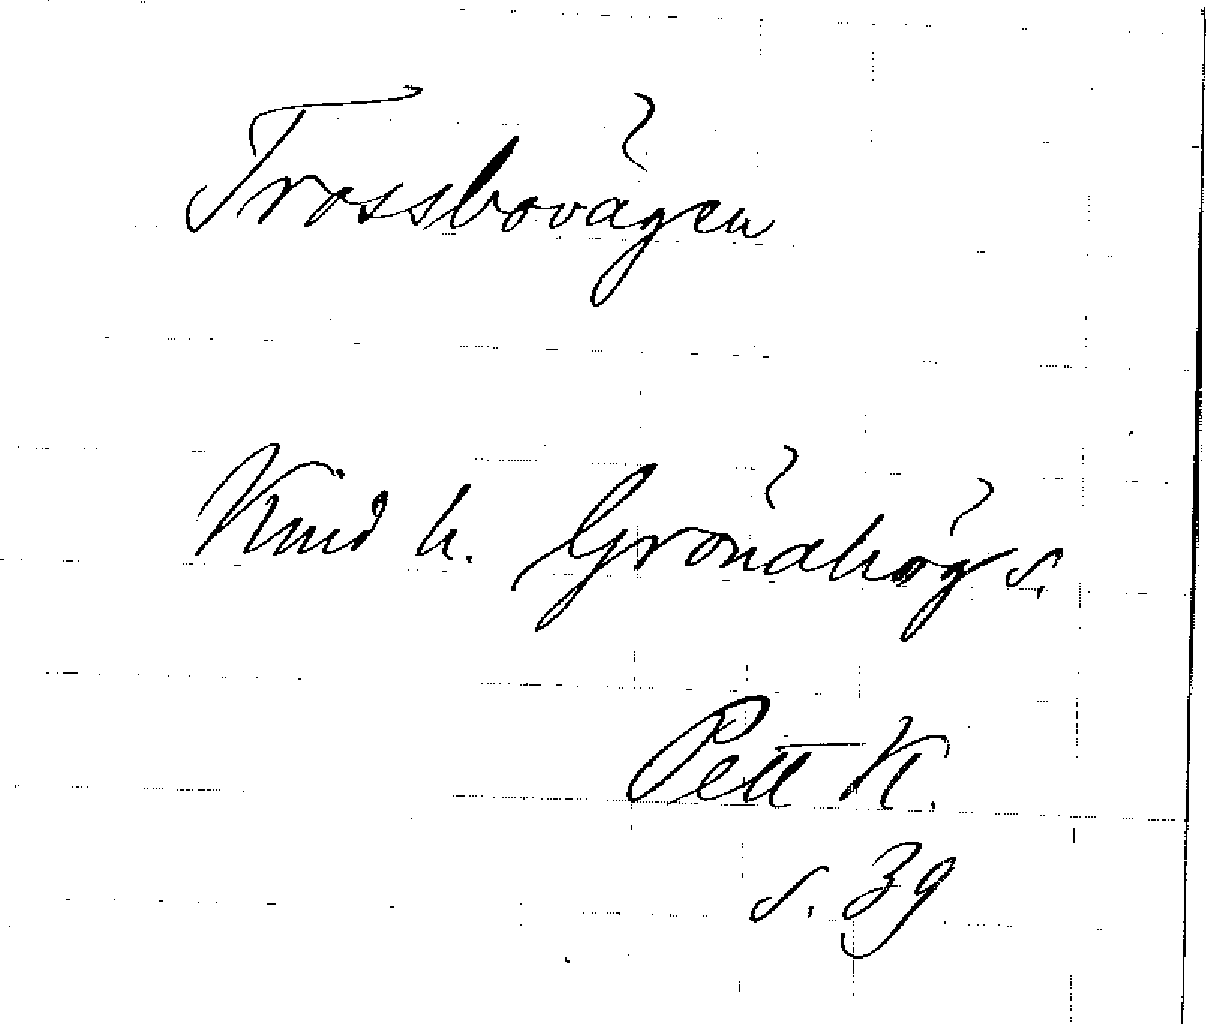 Trossbovägen
Kind h. Grönahög s.
Pett K.
s. 39